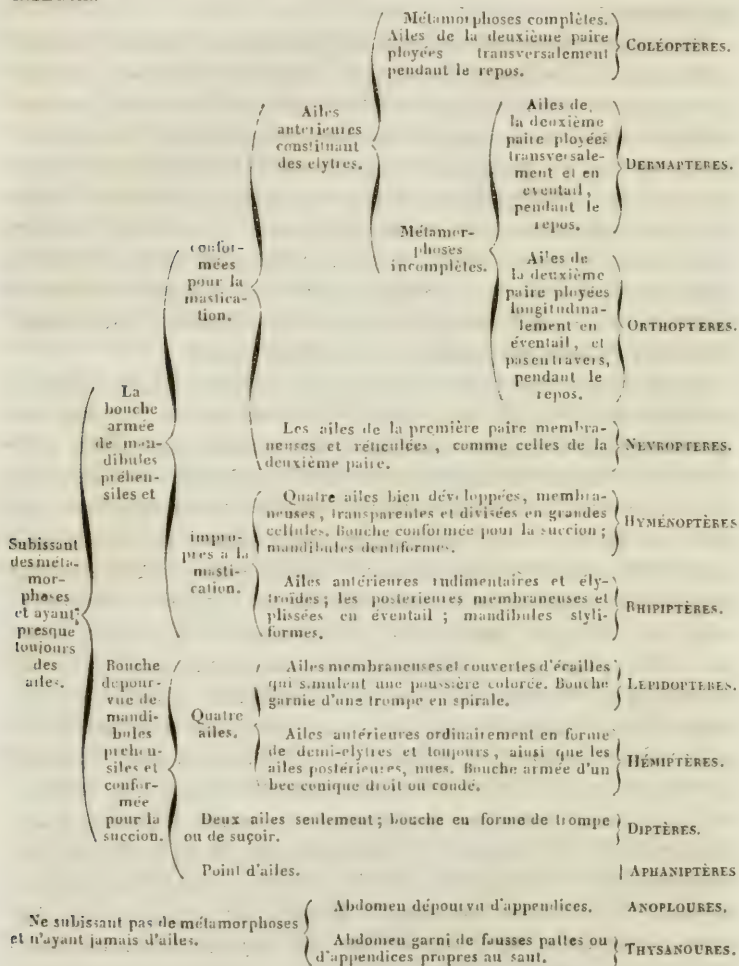 Subissant
des méta-
mor-
phoses
et ayant
presque
toujours
des
ailes.
La
bouche
armée
de man-
dibules
préhen-
siles et
confor-
mées
pour la
mastica-
tion.
Ailes
antérieures
constituant
des elytres.
Métamorphoses complètes.
Ailes de la deuxième paire
ployées transversalement
pendant le repos.
COLÉOPTÈRES.
Métamor-
phoses
incomplètes.
Ailes de
la deuxième
paire ployées
transversale-
ment et en
eventail,
pendant le
repos.
DERMAPTÈRES.
Ailes de
la deuxième
paire ployées
longitudina-
lement en
éventail, et
pas en travers,
pendant le
repos.
ORTHOPTÈRES.
Les ailes de la première paire membra-
neuses et réticulées, comme celles de la
deuxième paire.
NEVROPTÈRES.
impro-
pres a la
masti-
cation.
Quatre ailes bien développées, membra-
neuses, transparentes et divisées en grandes
cellules. Bouche conformée pour la succion;
mandibules dentiformes.
HYMÉNOPTÈRES
Ailes antérieures rudimentaires et ély-
troïdes; les posterieures membraneuses et
plissées en éventail; mandibules styli-
formes.
RHIPIPTÈRES.
Bouche
dépour-
vue de
mandi-
bules
prehen-
siles et
confor-
mée
pour la
succion.
Quatre
ailes.
Ailes membraneuses et couvertes d'écailles
qui simulent une poussière colorée. Bouche
garnie d'une trompe en spirale.
LEPIDOPTÈRES.
Ailes antérieures ordinairement en forme
de demi-elytres et toujours, ainsi que les
ailes postérieures, nues. Bouche armée d'un
bec conique droit ou coudé.
HÉMIPTÈRES.
Deux ailes seulement; bouche en forme de trompe
ou de suçoir.
DIPTÈRES.
Point d'ailes.
APHANIPTÈRES
Ne subissant pas de métamorphoses
et n'ayant jamais d'ailes.
Abdomen dépourvu d'appendices.
ANOPLOURES.
Abdomen garni de fausses pattes ou
d'appendices propres au saut.
THYSANOURES.